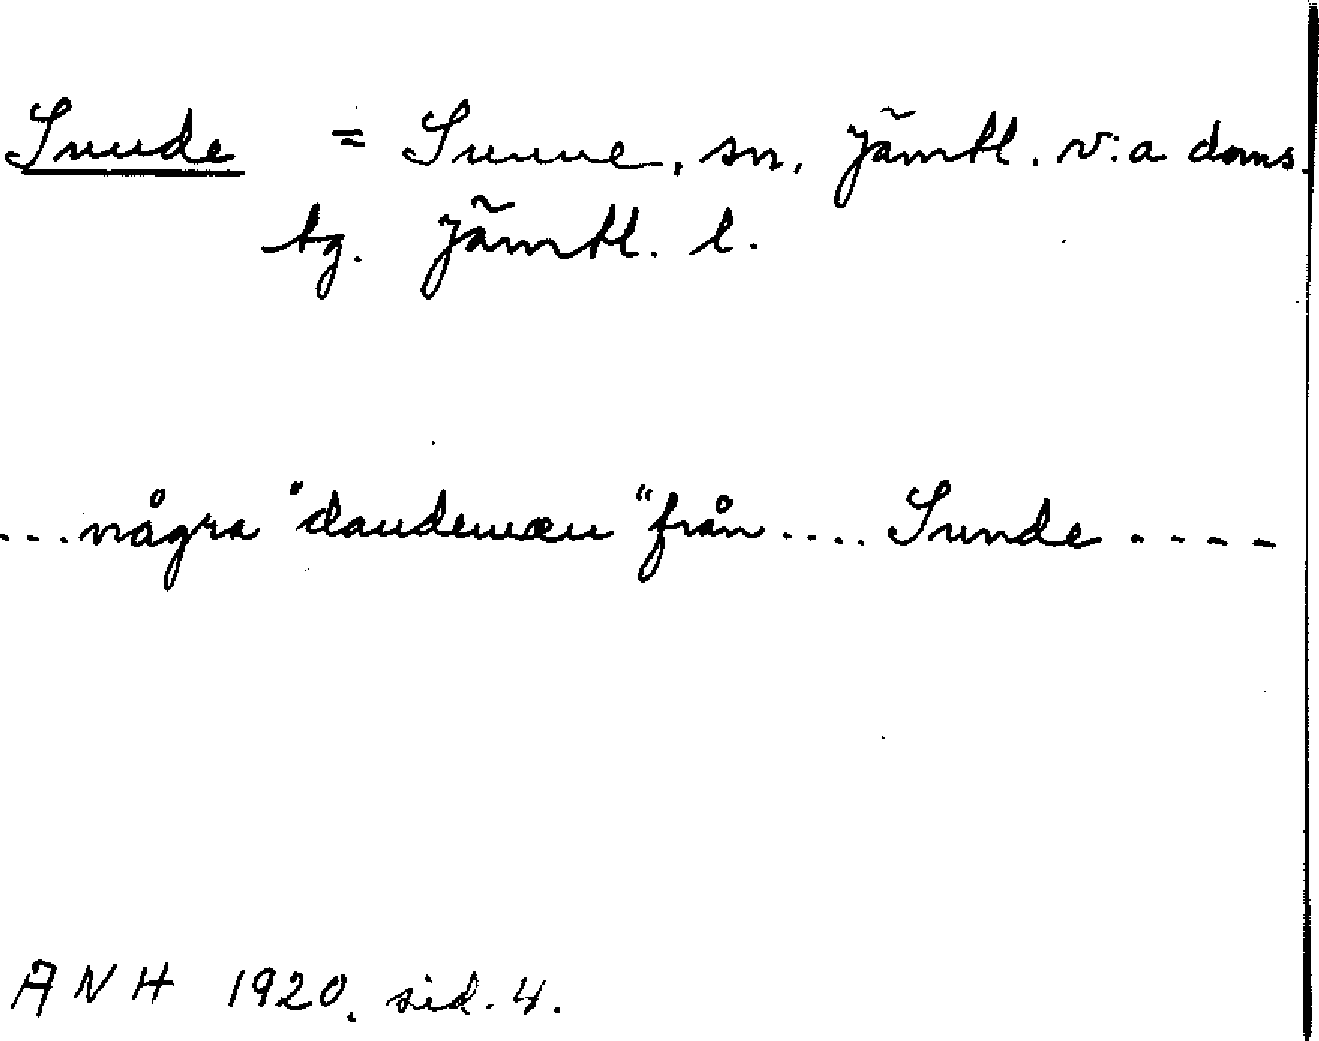 Sunde = Sunne, sn. Jämtl. v:a doms.
tg. Jämtl. l.
... några "daudemæn" från .... Sunde ----
ANH 1920. sid. 4.